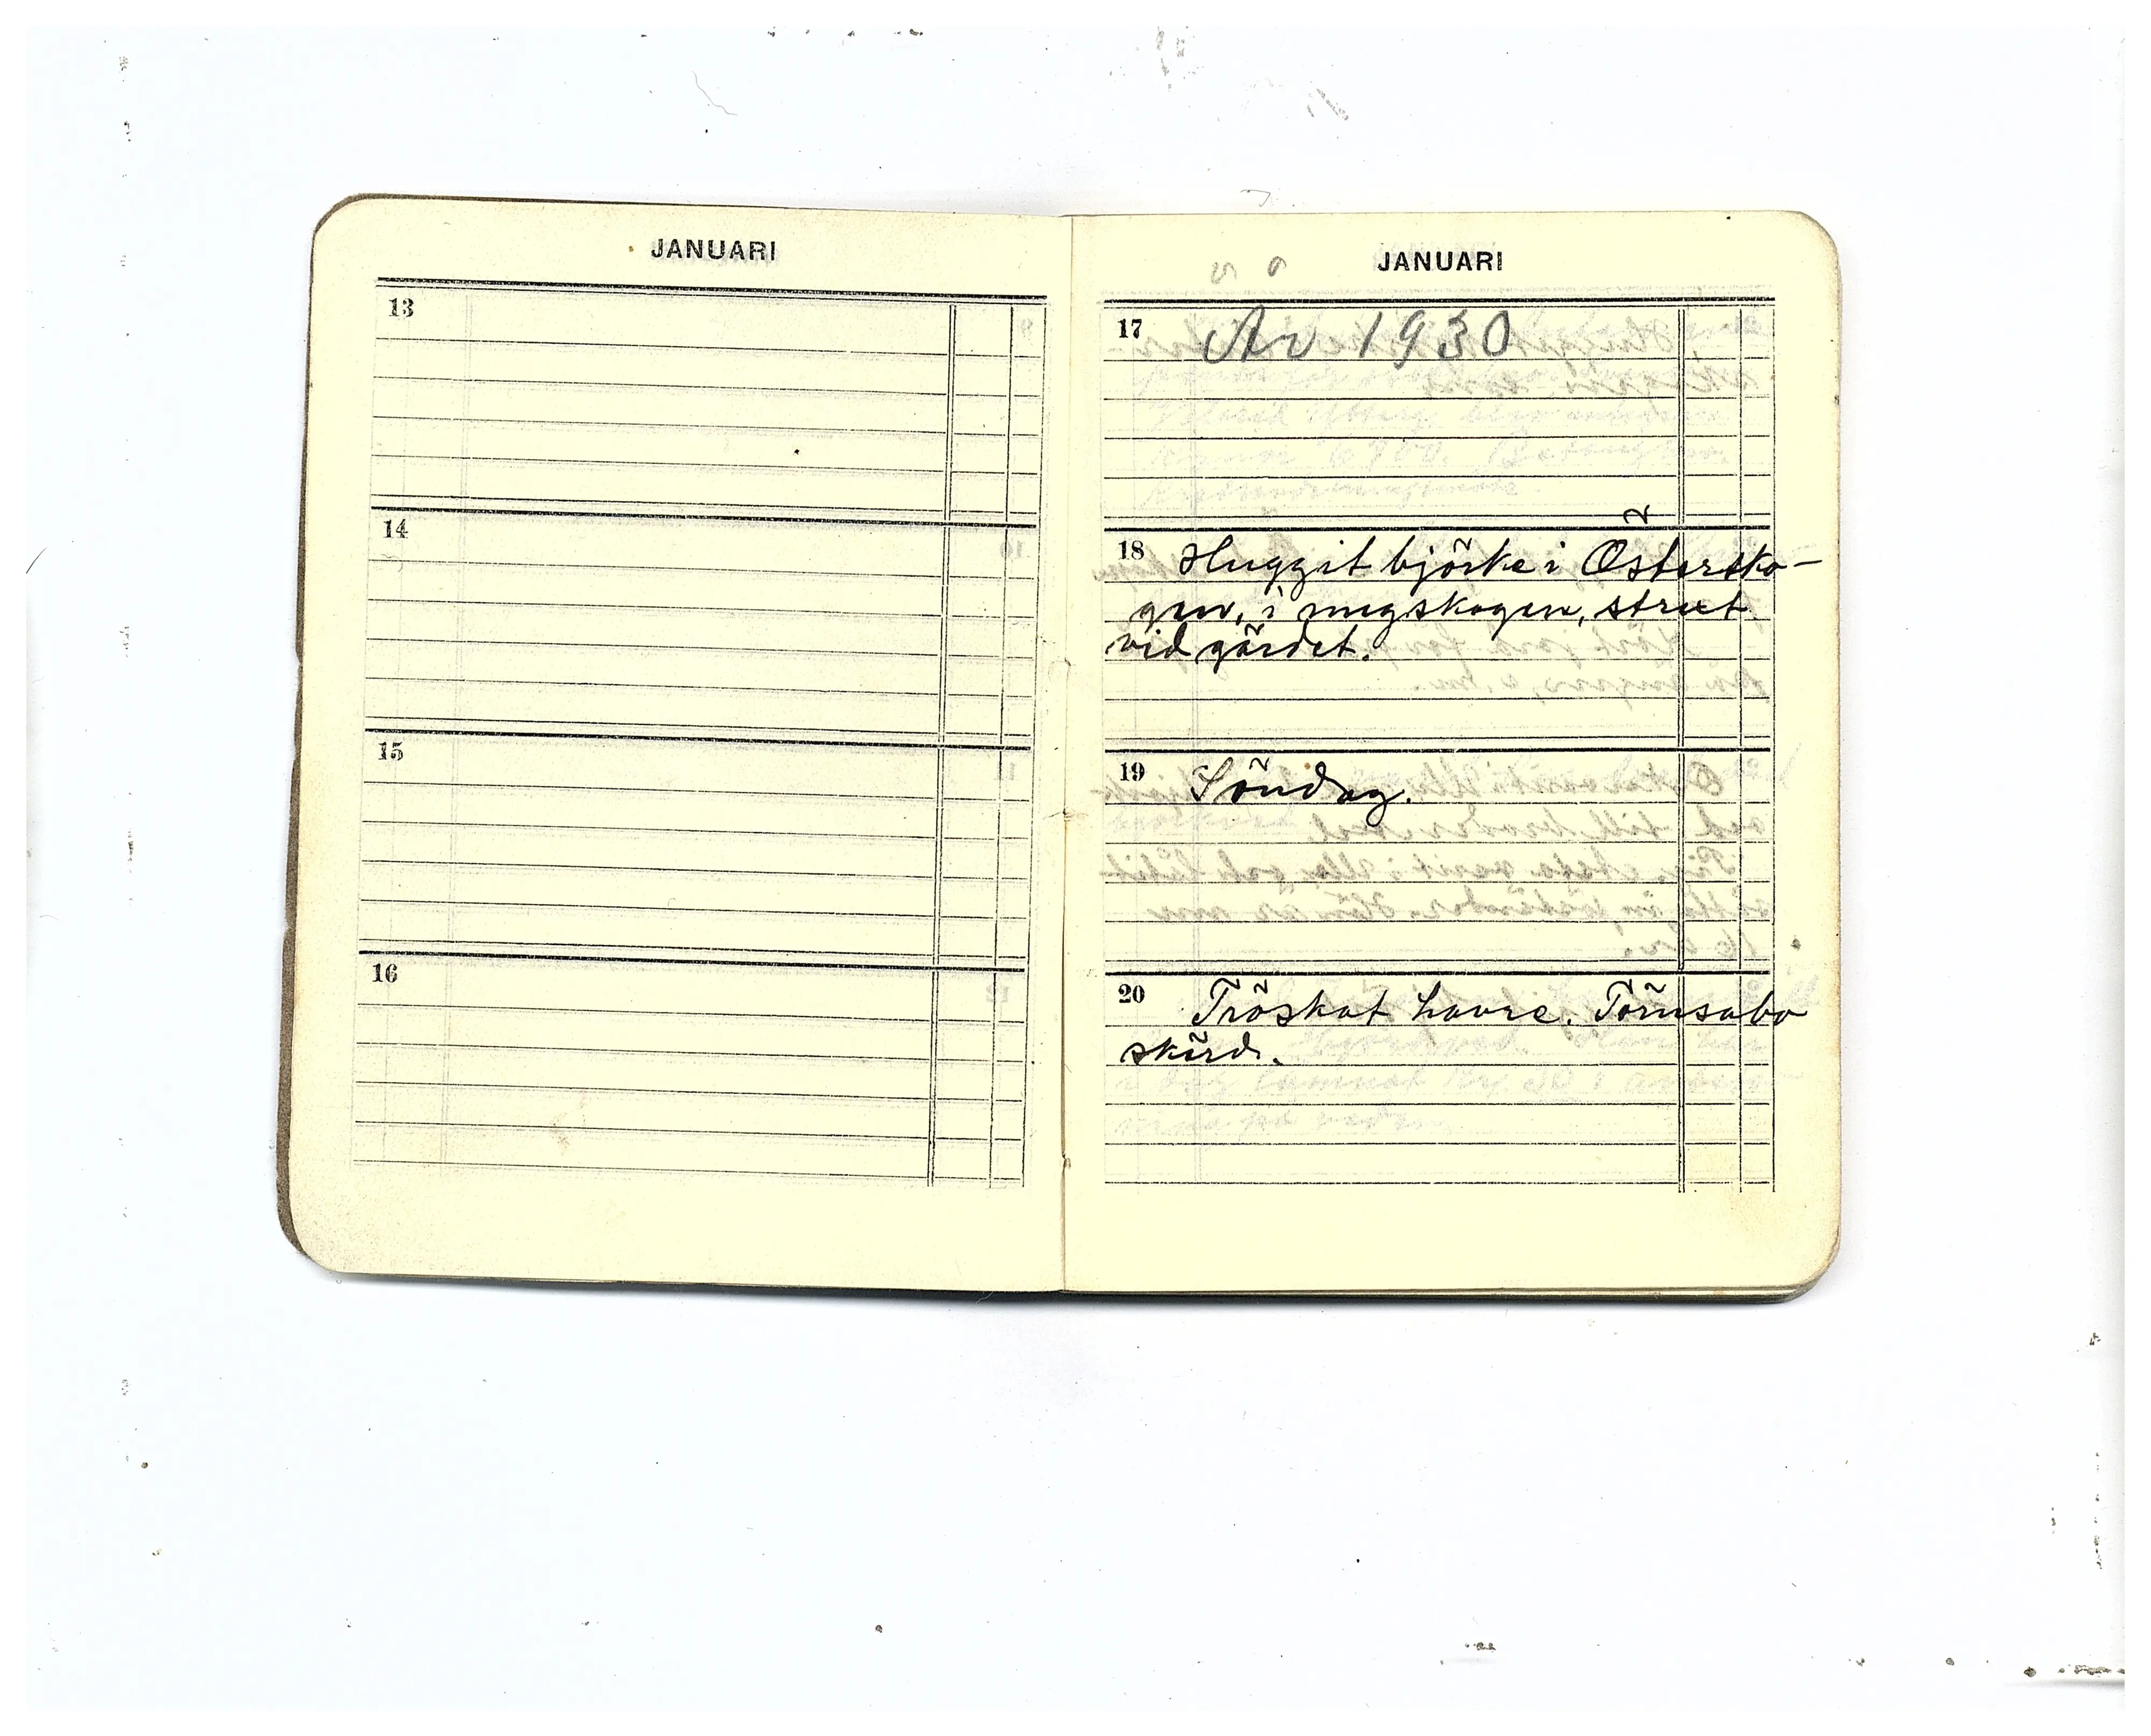 JANUARI
13
14
15
16
JANUARI
17 Av 1930
18 Huggit björke i Östersko-
gen, i ungskogen, straxt
vid gärdet.
19 Söndag.
20 Tröskat havre. Törnsabo
skörd.